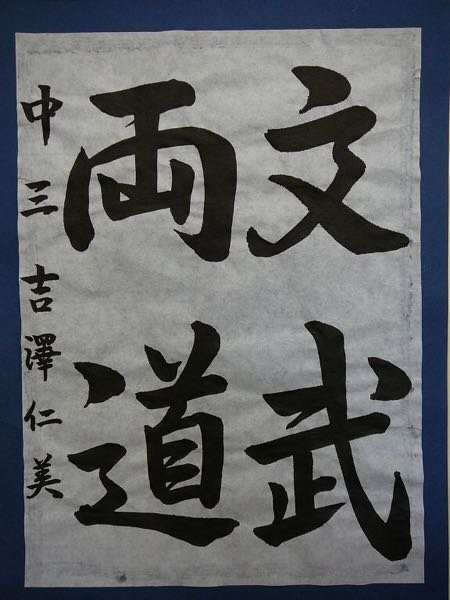 文武
両道
中三 吉澤仁美